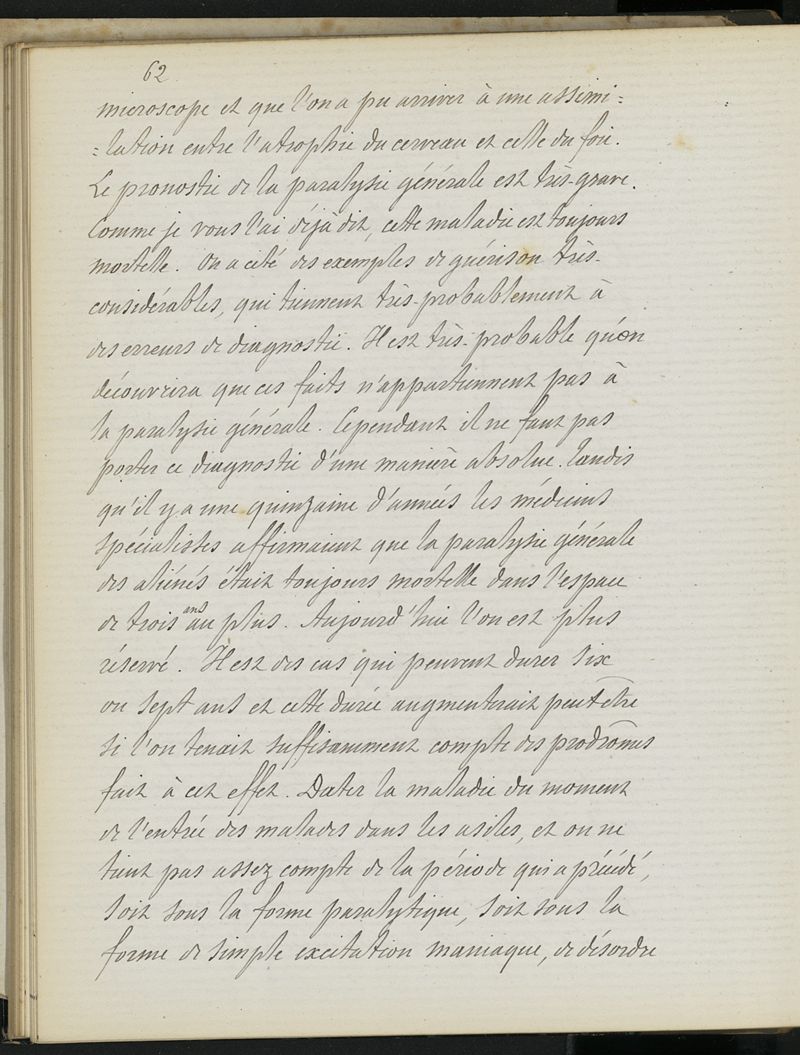 62
microscope et que l'on a pu arriver à une assimi=
=lation entre l'atrophie du cerveau et celle du foie.
Le pronostic de la paralysie générale est très-grave.
Comme je vous l'ai déjà dit, cette maladie est toujours
mortelle. On a cité des exemples de guérison très-
considérables, qui tiennent très-probablement à
des erreurs de diagnostic. Il est très-probable qu'on
découvrira que ces faits n'appartiennent pas à
la paralysie générale. Cependant il ne faut pas
porter ce diagnostic d'une manière absolue. Tandis
qu'il y a une quinzaine d'années les médecins
spécialistes affirmaient que la paralysie générale
des aliénés était toujours mortelle dans l'espace
de trois ans au plus. Aujourd'hui l'on est plus
réservé. Il est des cas qui peuvent durer six
ou sept ans et cette durée augmenterait peut-être
si l'on tenait suffisamment compte des prodrômes
fait à cet effet. Dater la maladie du moment
de l'entrée des malades dans les asiles, et on ne
tient pas assez compte de la période qui a précédé,
soit sous la forme paralytique, soit sous la
forme de simple excitation maniaque, de désordre